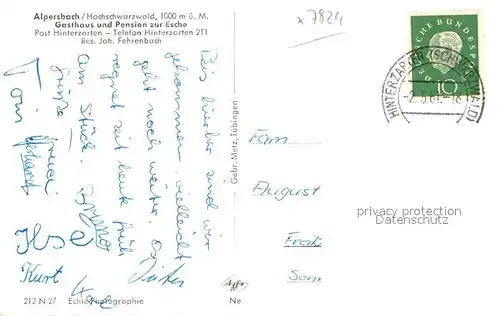 Alpersbach / Hochschwarzwald, 1000 m ü. M.
Gasthaus und Pension zur Esche
Post Hinterzarten – Telefon Hinterzarten 211
Bes. Joh. Fehrenbach
x 7824
DEUTSCHE BUNDESPOST
10
HINTERZARTEN (SCHWARZWALD)
-2.5.61.-18
Bis hierher sind wir
gekommen, vielleicht
geht noch weiter. Es
regnet seit heute früh
am Stück.
Grüße
Ilse
Kurt
Dieter
Gebr. Metz, Tübingen
Fam
August
privacy protection
Datenschutz
212 N 27
Echte Photographie
Agfa
Ne